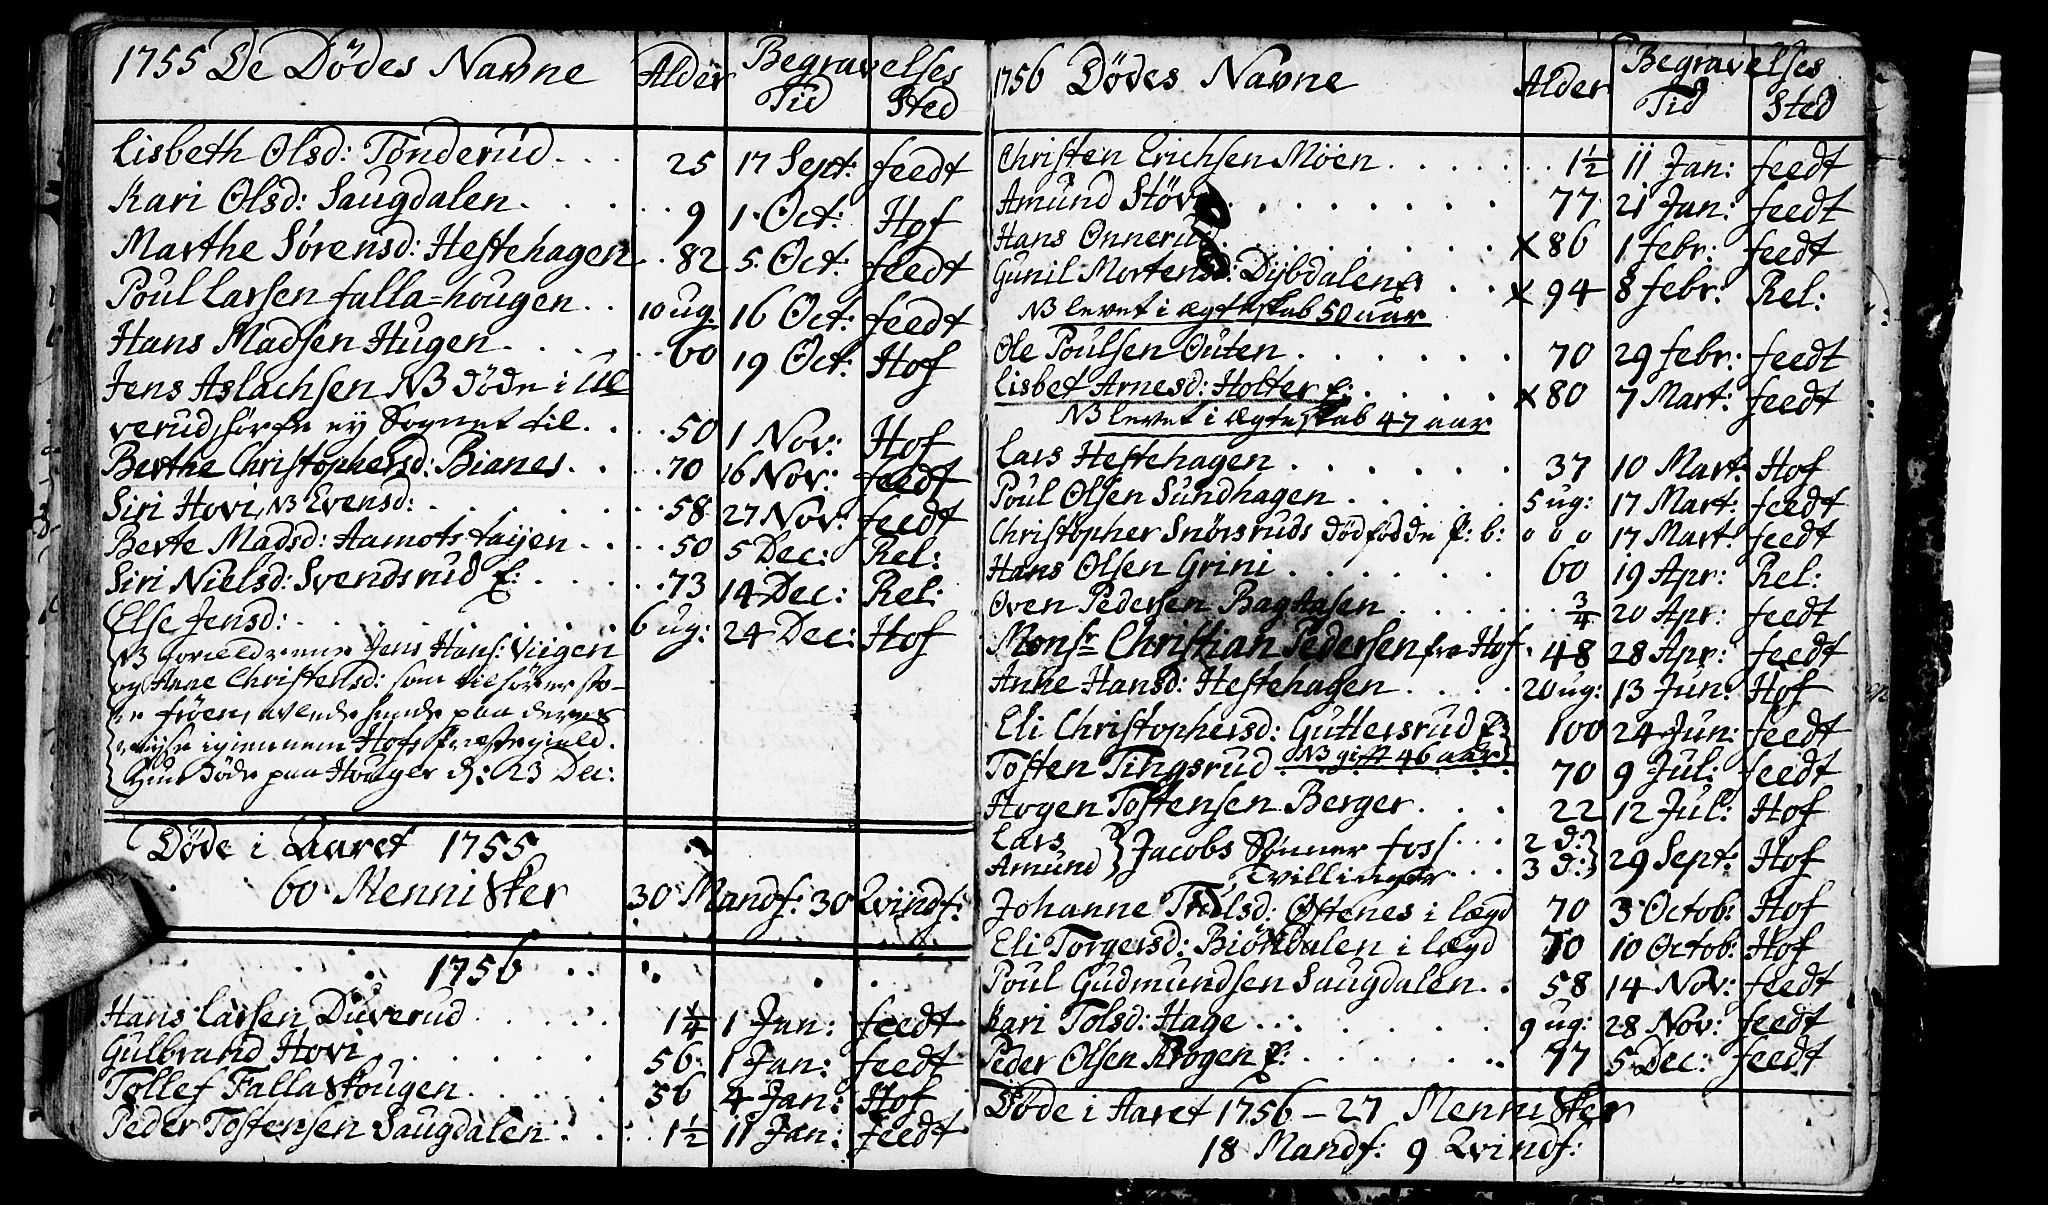 1755 De Dödes Navne Alder Begravelses
Tid Sted
Lisbeth Olsd: Tönderud . . . 25 17 Sept: feedt
Kari Olsd: Saugdalen . . . . 9 1. Oct: Hof
Marthe Sörensd: Hestehagen . . 82 5. Oct: feedt
Poul Larsen falla=hougen . . 10 ug. 16 Oct: feedt
Hans Madsen Hugen . . . . 60 19 Oct: Hof
Jens Aslachsen NB döde i Ul
verud, hörde ey Sognet til . . . 50 1 Nov: Hof
Berthe Christophersd: Bianes . . . 70 16 Nov: feedt
Siri Hovi, NB Evensd: . . . . 58 27 Nov: feedt
Berte Madsd: Aamots taijen . . . 50 5 Dec: Rel:
Siri Nielsd: Svendsrud f: . . . . 73 14 Dec: Rel:
Else Jensd: . . . . . 6 ug: 24 Dec: Hof
NB foreldrene Jens Hans: Viigen
og Anne Christensd: som tilhörer sto-
re fröen, avlede hende paa deres
reijse igiennem Hofs Præstegield.
Hun döde paa Houger d: 23 Dec:
Döde i Aaret 1755
60 Mennisker 30 Mandf: 30 Qvindf:
1756
Hans Larsen Duverud . . . . . 1¼ 1 Jan: feedt
Gulbrand Hovi . . . . . 56 1 Jan: feedt
Tollef Fallaskougen . . . . . 36 4 Jan: Hof
Peder Tostensen Saugdalen . . . 1½ 11 Jan: feedt
1756 Dödes Navne Alder Begravelses
Tid Sted
Christen Erichsen Möen . . . . . 1½ 11 Jan: feedt
Amund Stöv . . . . . . . 77 21 Jan: feedt
Hans Onnerud . . . . . . x 86 1 febr: feedt
Gunil Mortensd: Dybdalen f: . . x 94 8 febr: Rel:
NB levet i ægteskab 50 aar
Ole Poulsen Outen . . . . . . 70 29 febr: feedt
Lisbet Arnesd: Holter f: . . . . x 80 7 Mart: feedt
NB levet i ægteskab 47 aar
Lars Hestehagen . . . . . . 37 10 Mart: Hof
Poul Olsen Sundhagen . . . . . 5 ug: 17 Mart: feedt
Christopher Snörsruds dödfödde P: b: 0 0 0 17 Mart: feedt
Hans Olsen Grini . . . . . . 60 19 Apr: Rel:
Oven Pedersen Bagaasen . . . . . ¾ 20 Apr: feedt
Monsr Christian Pedersen fra Hof . 48 28 Apr: feedt
Anne Hansd: Hestehagen . . . . 20 ug: 13 Jun: Hof
Eli Christophersd: Guttersrud f: 100 24 Jun: feedt
NB gift 46 aar
Tosten Tingsrud . . . . . 70 9 Jul: feedt
Hogen Tostensen Berger . . . 22 12 Jul: Hof
Lars } Jacobs Sönner foss . . . 2 d: }
Amund } Tvillinger . . . 3 d: } 29 Sept: Hof
Johanne Trulsd: Ostenes i lægd 70 3 Octob: Hof
Eli Torgersd: Biörndalen i lægd 70 10 Octob: Hof
Poul Gudmundsen Saugdalen . . 58 14 Nov: feedt
Kari Tolsd: Hage . . . . . . 9 ug: 28 Nov: feedt
Peder Olsen Krogen f: . . . . . . 77 5 Dec: feedt
Döde i Aaret 1756 - 27 Mennisker
18 Mandf: 9 Qvindf: